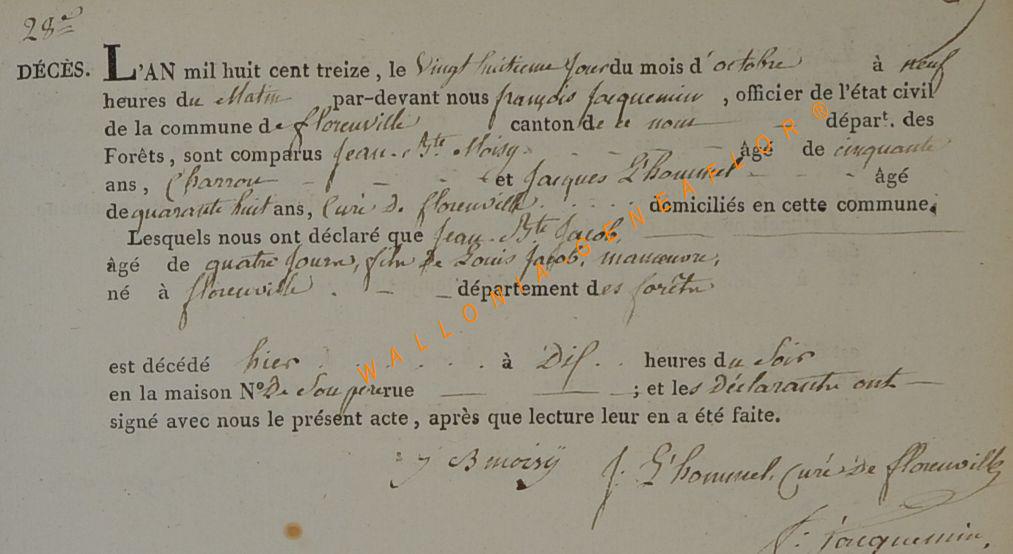 28e
DÉCÈS. L'AN mil huit cent treize, le Vingt huitieme Jour du mois d'octobre à neuf
heures du Matin par-devant nous françois Jacquemin, officier de l'état civil
de la commune de florenville canton de ce nom départ. des
Forêts, sont comparus Jean-Bte Moisy âgé de cinquante
ans, Charron et Jacques L'hommel âgé
de quarante huit ans, Curé de florenville domiciliés en cette commune.
Lesquels nous ont déclaré que Jean-Bte Jacob,
âgé de quatre Jours, fils de Louis Jacob, manoeuvre,
né à florenville département des forêts
est décédé hier à Dix heures du Soir
en la maison N° De Son pere rue ; et les Déclarants ont
signé avec nous le présent acte, après que lecture leur en a été faite.
J B moisÿ J. L'hommel, Curé de florenville
f. Jacquemin.
WALLONIA GENEAFLOR ®